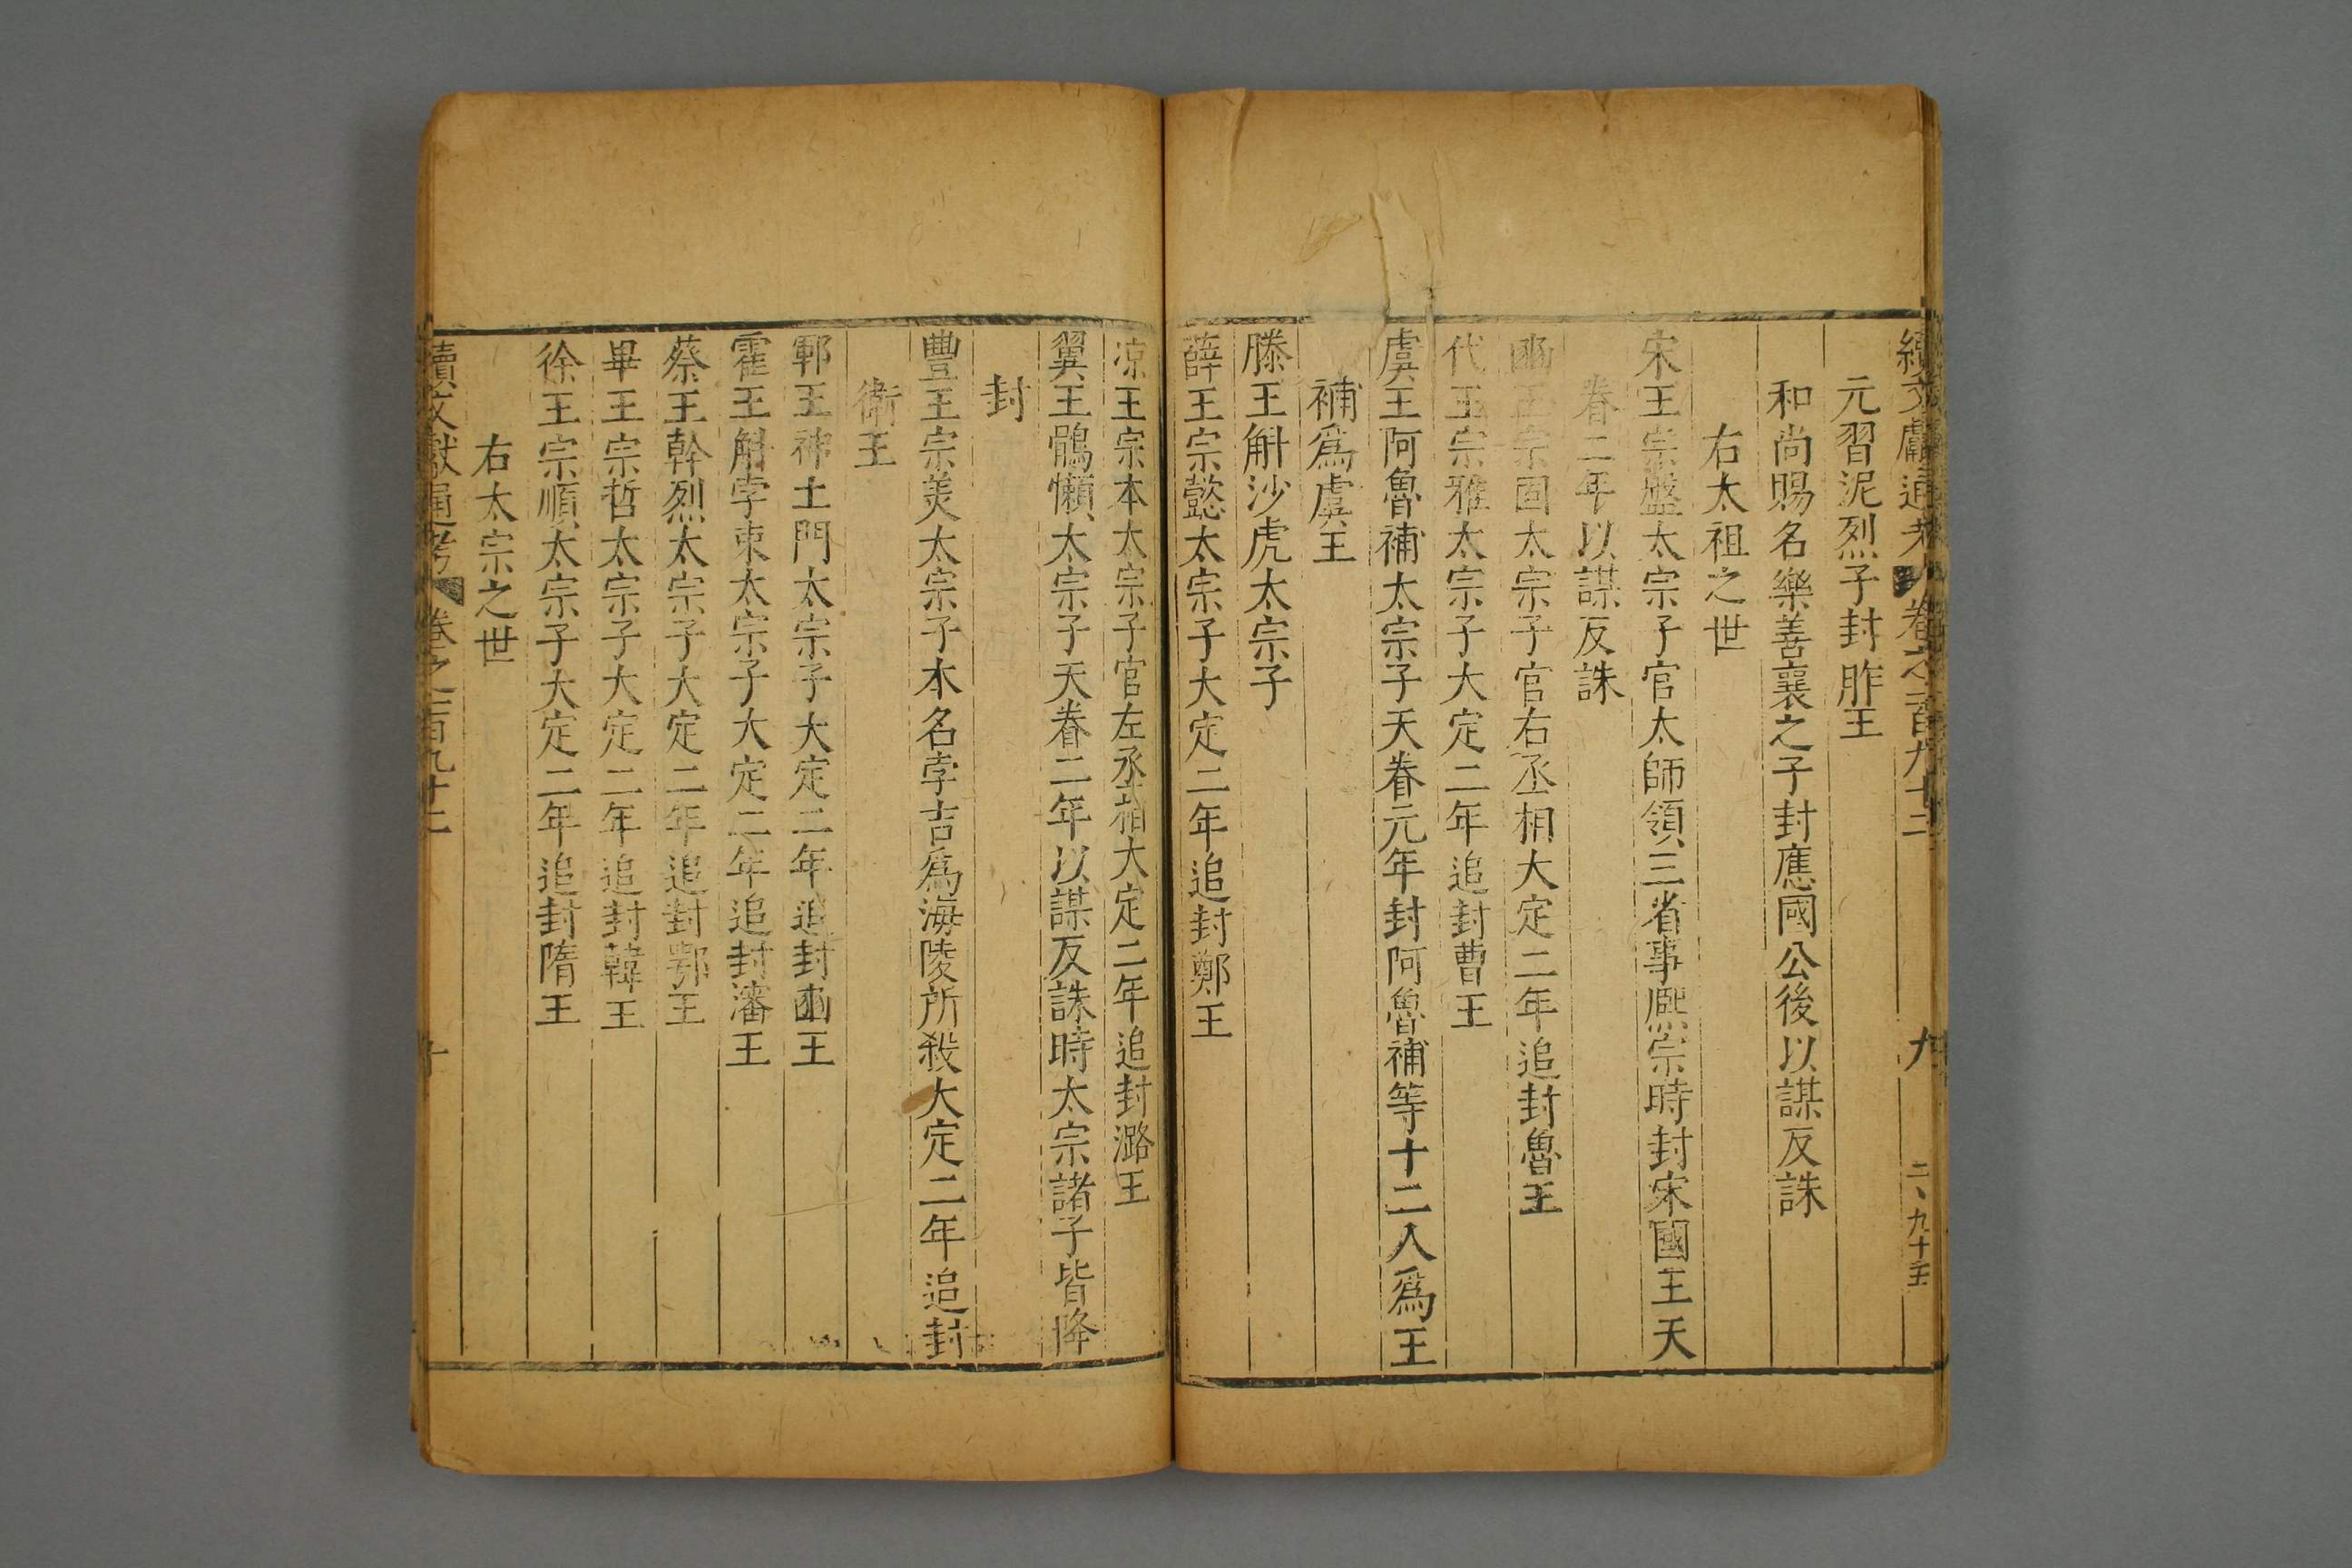 續文獻通考 卷之二百九十二 九 二、九十五
元習泥烈子封胙王
和尚賜名樂善襄之子封應國公後以謀反誅
右太祖之世
宋王宗盤太宗子官太師領三省事熈宗時封宋國王天
眷二年以謀反誅
豳王宗固太宗子官右丞相大定二年追封魯王
代王宗雅太宗子大定二年追封曹王
虞王阿魯補太宗子天眷元年封阿魯補等十二人爲王
補爲虞王
滕王斛沙虎太宗子
薛王宗懿太宗子大定二年追封鄭王
凉王宗本太宗子官左丞相大定二年追封潞王
翼王鶻懶太宗子天眷二年以謀反誅時太宗諸子皆降
封
豐王宗美太宗子本名孛吉爲海陵所殺大定二年追封
衛王
鄆王神土門太宗子大定二年追封豳王
霍王斛孛束太宗子大定二年追封瀋王
蔡王幹烈太宗子大定二年追封鄂王
畢王宗哲太宗子大定二年追封韓王
徐王宗順太宗子大定二年追封隋王
右太宗之世
續文獻通考 卷之二百九十二 十